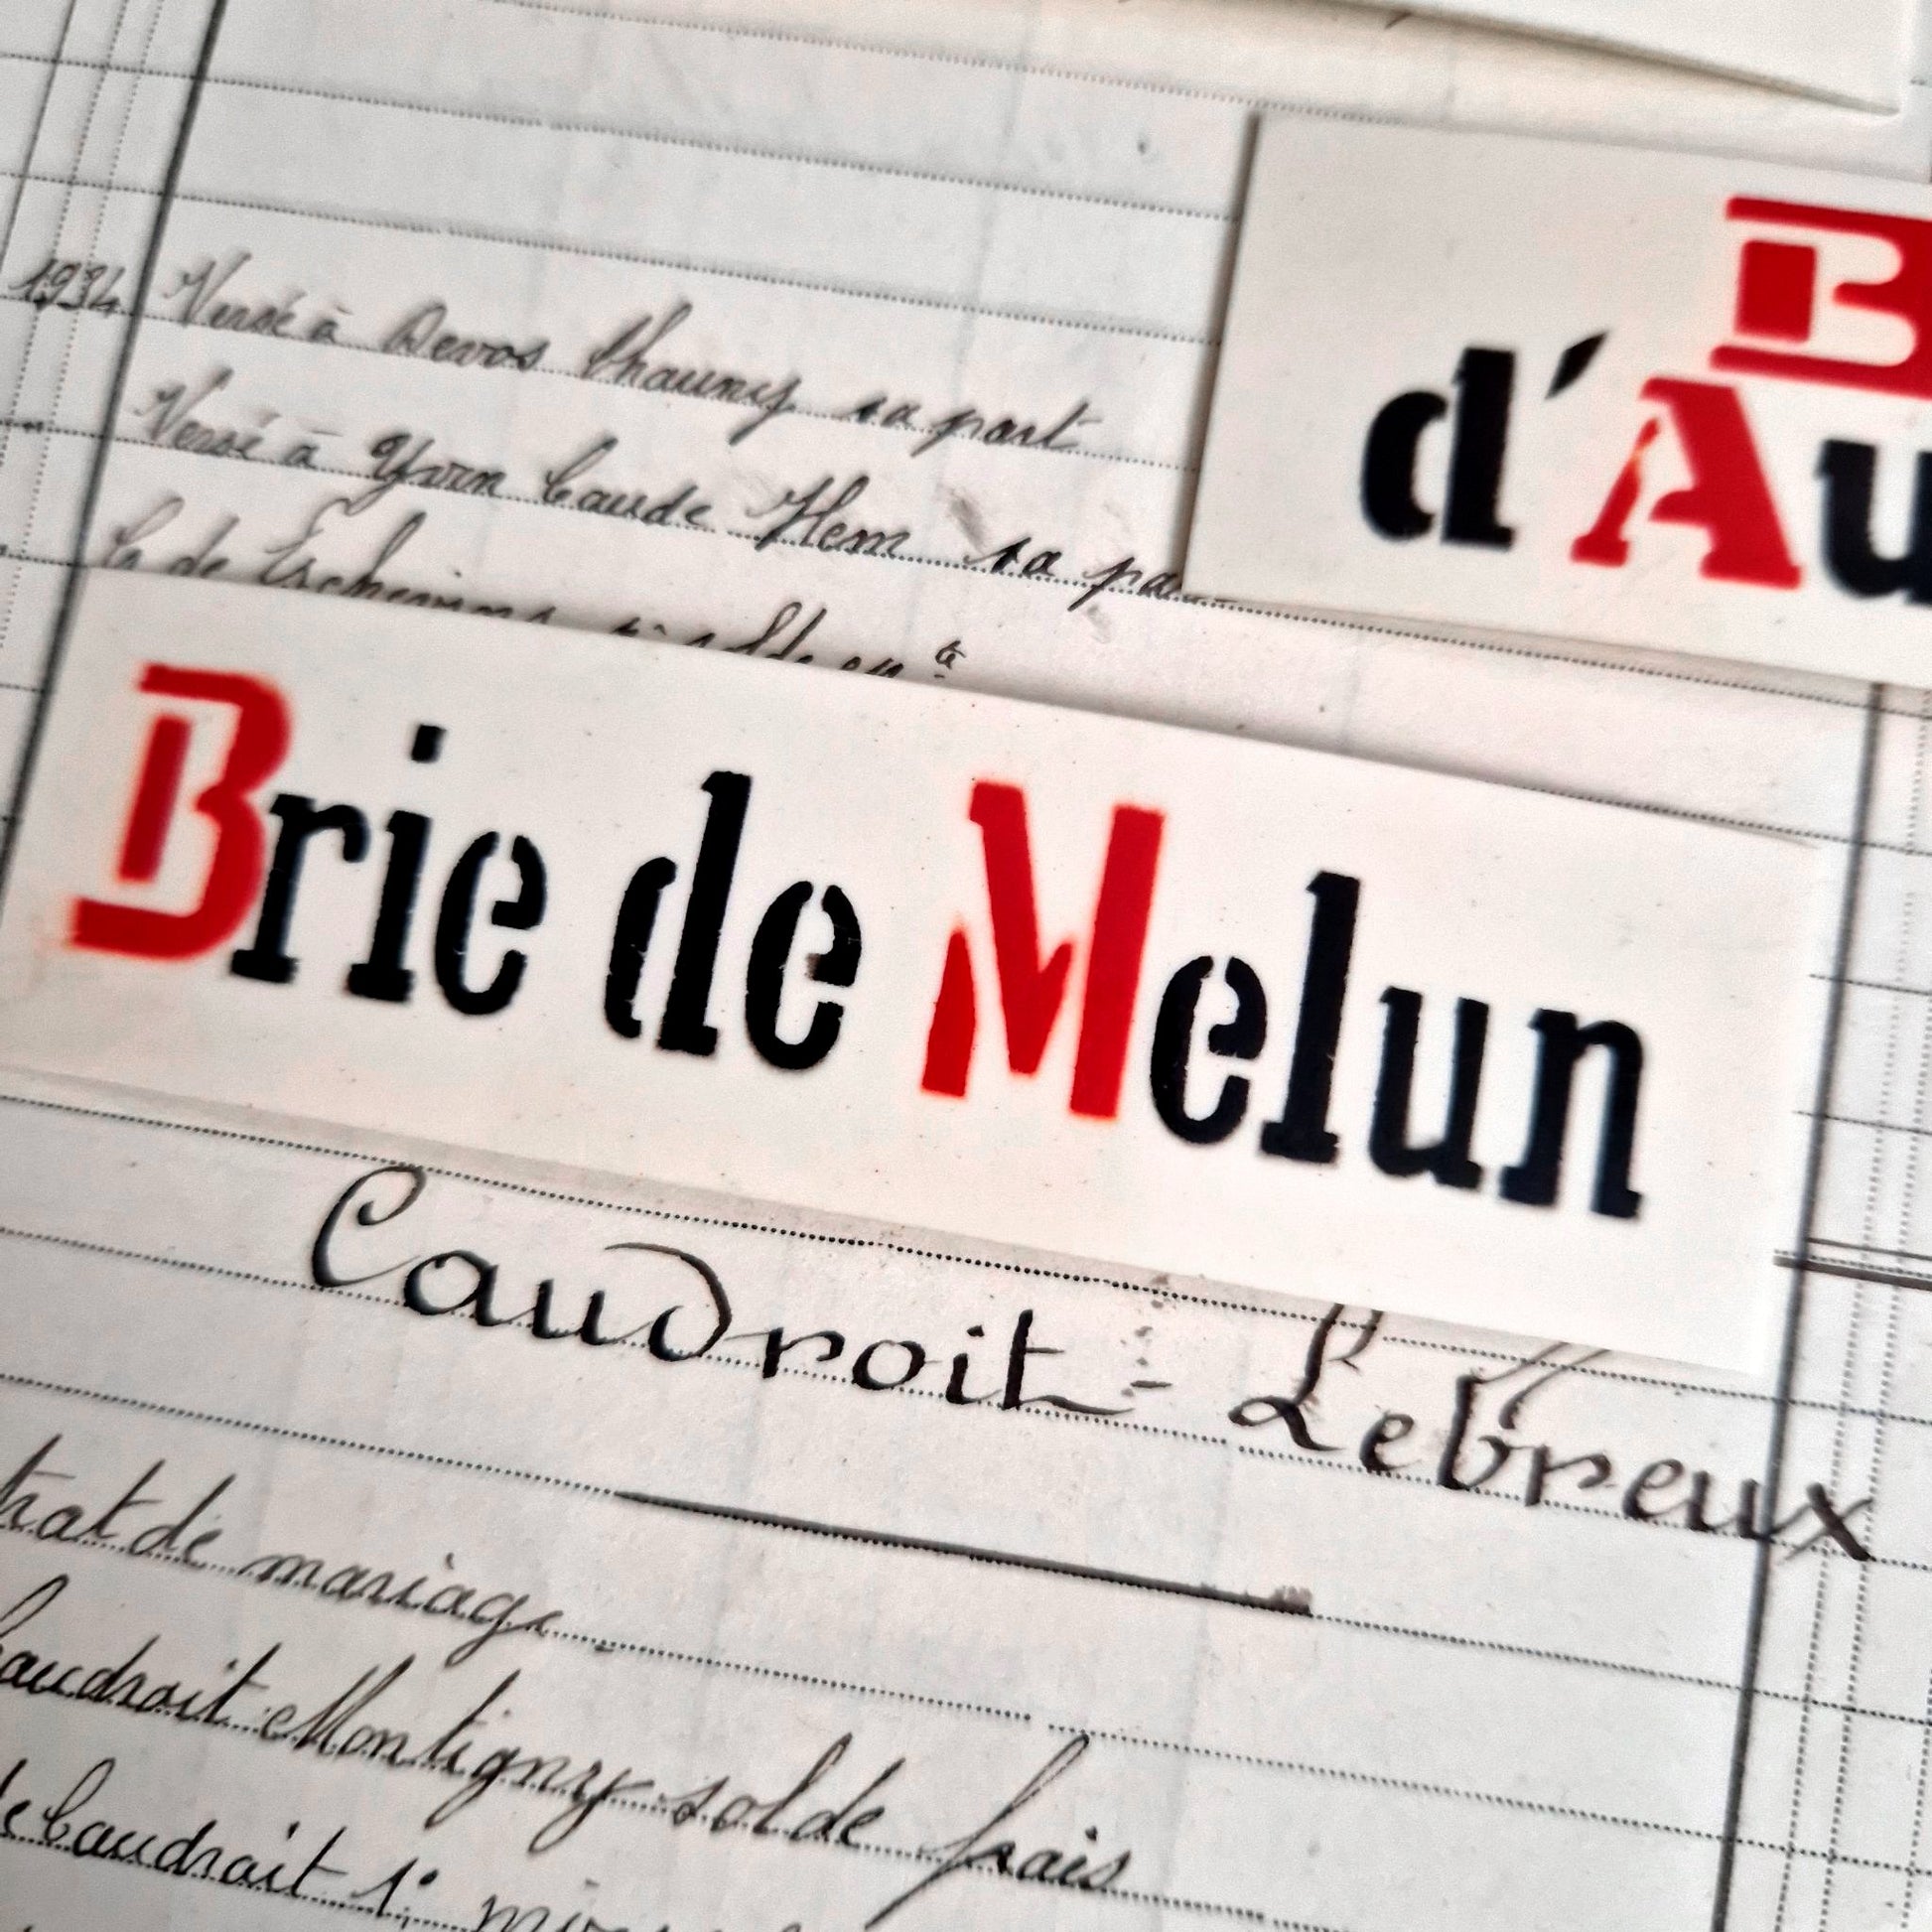 B
d'Au
1934 Versé à Devos Chauny sa part
Versé à Yvon Caude Hem sa pa
C de solde en te
Brie de Melun
Caudroit - Lebreux
trat de mariage
Caudroit Montigny solde frais
de Caudroit 1º